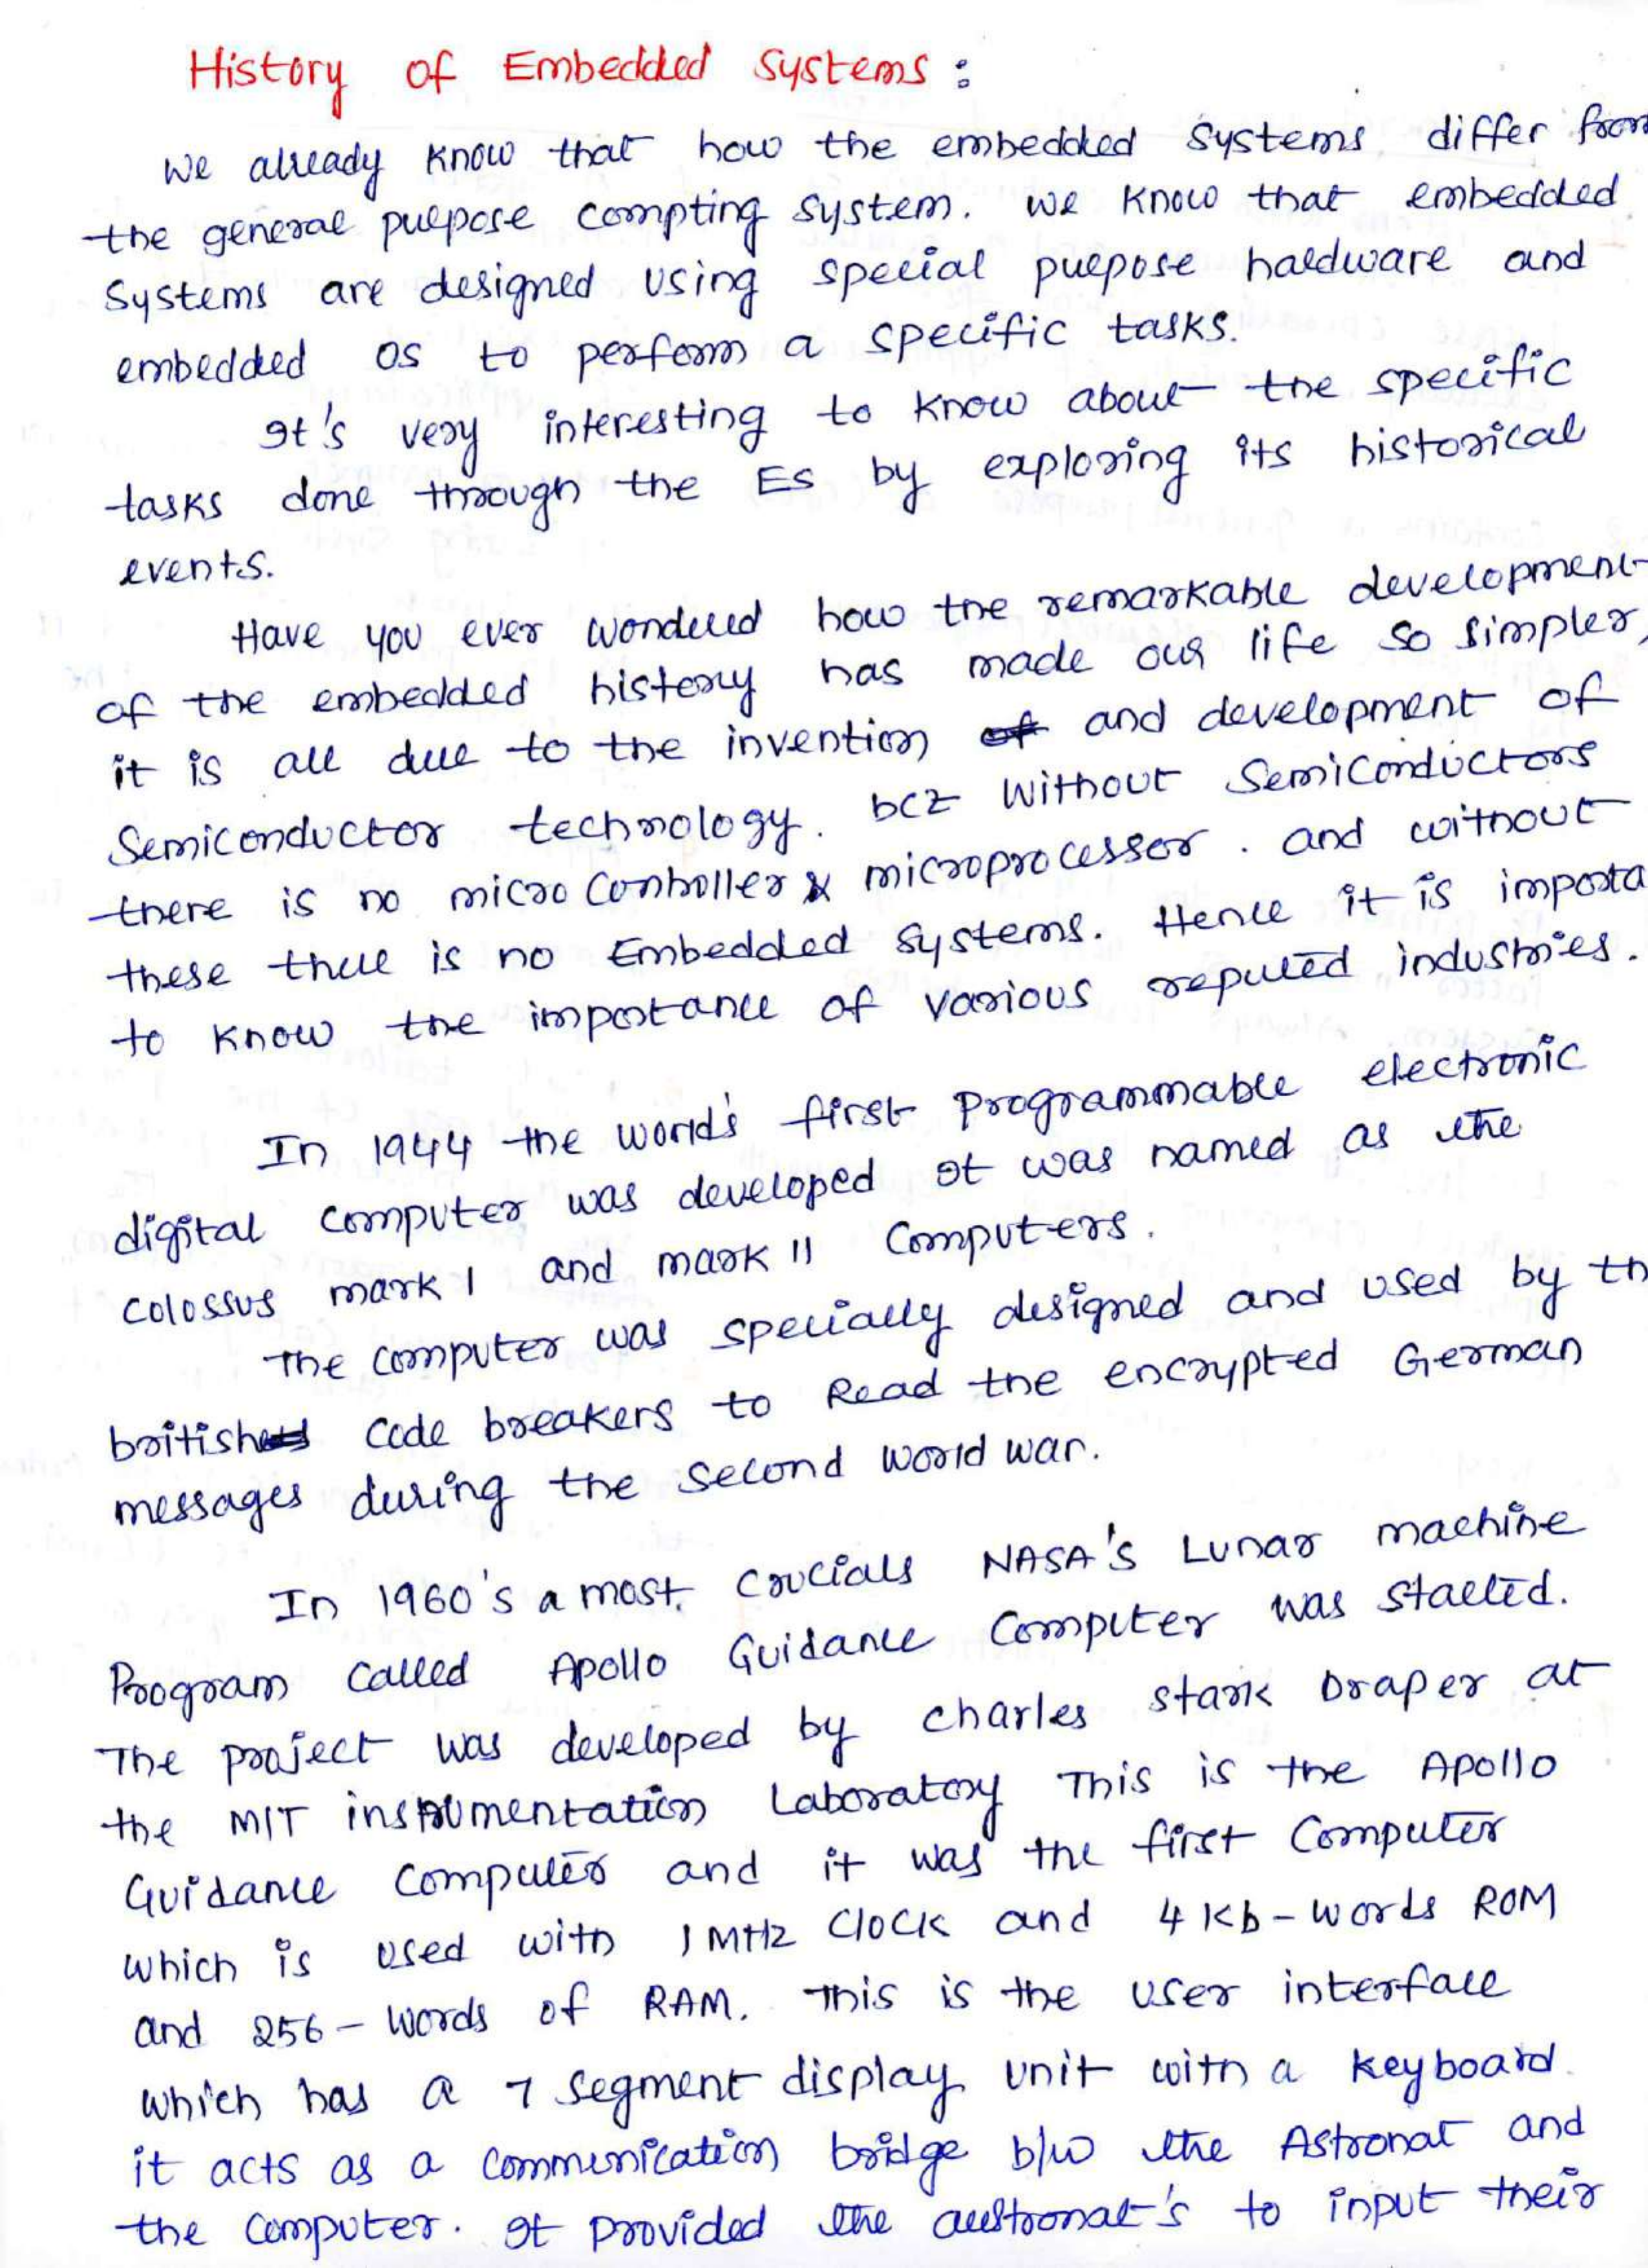 History of Embedded Systems :
We already know that how the embedded systems differ from
the general purpose compting system. We know that embedded
Systems are designed using special purpose hardware and
embedded OS to perform a specific tasks.
It's very interesting to know about the specific
tasks done through the ES by exploring its historical
events.
Have you ever wondered how the remarkable development
of the embedded history has made our life so simpler,
it is all due to the invention of and development of
Semiconductor technology. bcz without Semiconductors
there is no micro Controller & microprocessor. and without
these there is no Embedded systems. Hence it is importa
to know the importance of various reputed industries.
In 1944 the world's first programmable electronic
digital computer was developed It was named as the
colossus mark I and mark II Computers.
The computer was specially designed and used by th
british code breakers to Read the encrypted German
messages during the second world war.
In 1960's a most crucials NASA's Lunar machine
Program called Apollo Guidance Computer was started.
The project was developed by charles stark Draper at
the MIT instrumentation Laboratory This is the Apollo
Guidance computer and it was the first Computer
which is used with 1 MHz Clock and 4 Kb - words ROM
and 256 - words of RAM. This is the user interface
which has a 7 segment display unit with a keyboard.
it acts as a communication bridge b/w the Astronat and
the computer. It provided the austronat's to input their